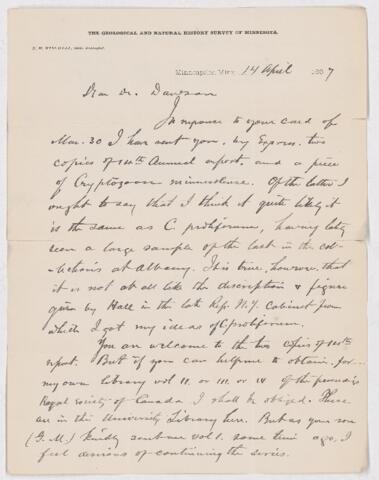 THE GEOLOGICAL AND NATURAL HISTORY SURVEY OF MINNESOTA.
N. H. WINCHELL, State Geologist.
Minneapolis, Minn. 14 April 1887
Dear Dr. Dawson
In response to your card of
Mar. 30 I have sent you, by Express, two
copies of 14th Annual report, and a piece
of Cryptozoon minnesotense. Of the latter I
ought to say that I think it quite likely it
is the same as C. proliferum, having lately
seen a large sample of the last in the col-
lections at Albany. It is true, however, that
it is not at all like the description & figure
given by Hall in the late Rep. N.Y. Cabinet from
which I got my ideas of C. proliferum.
You are welcome to the two copies of 14th
report. But if you can help me to obtain for
my own library vol II. or III. or IV of the
Royal Society of Canada I shall be obliged. These
are in the University Library here. But as your son
(G. M.) kindly sent me vol 1. some time ago, I
feel desirous of continuing the series.